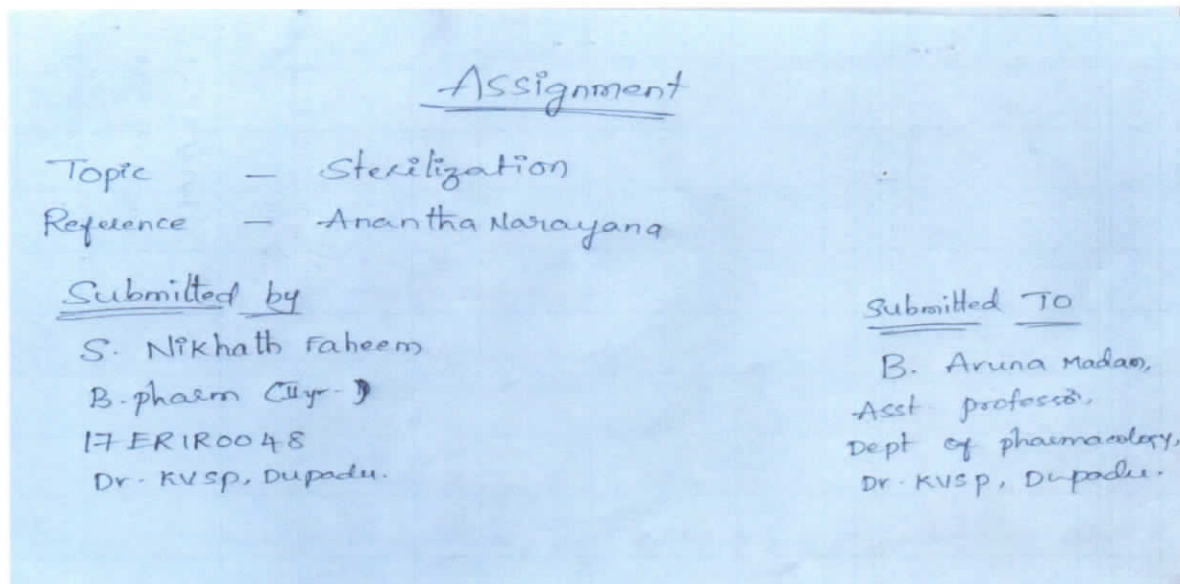 Assignment
Topic — Sterilization
Reference — Anantha Narayana
Submitted by
S. Nikhath Faheem
B.pharm (II yr-)
17ER1R0048
Dr. KVSP, Dupadu.
Submitted To
B. Aruna Madam,
Asst professor,
Dept of pharmacology,
Dr. KVSP, Dupadu.